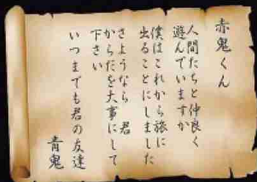 赤鬼くん
人間たちと仲良く
遊んでいますか
僕はこれから旅に
出ることにしました
さようなら 君
からだを大事にして
下さい
いつまでも君の友達
青鬼